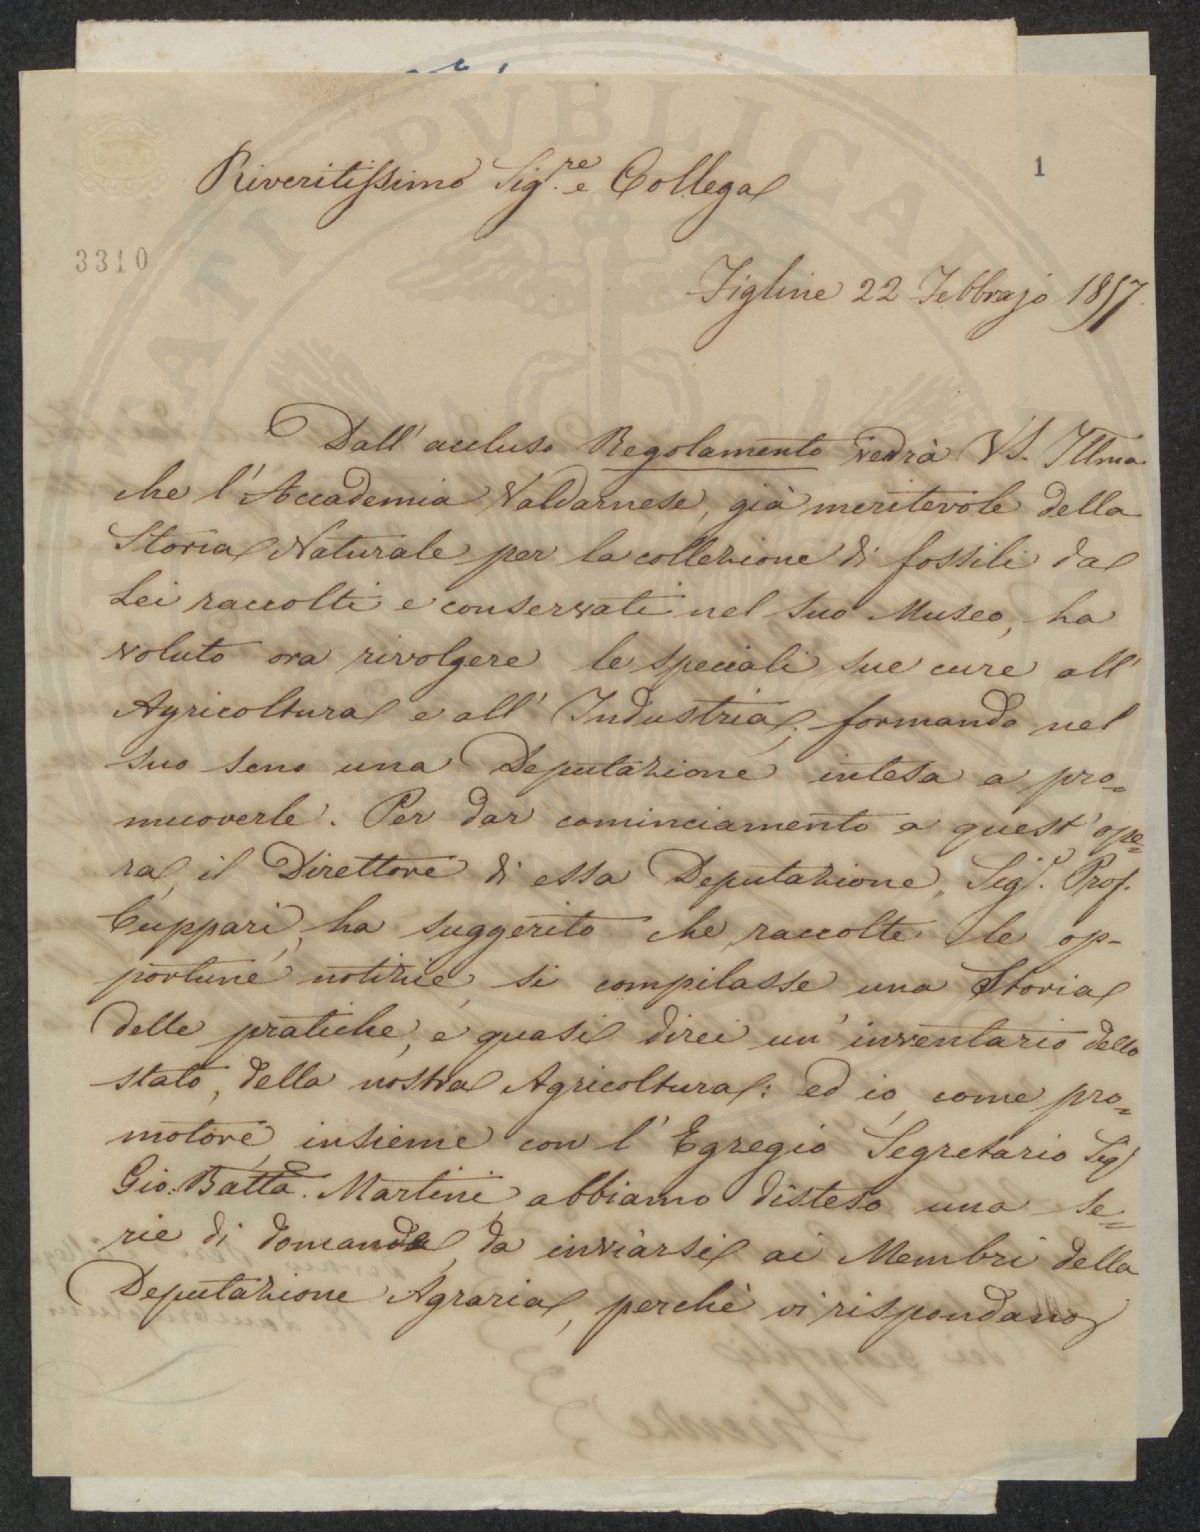 1
Riveritissimo Sig.re e Collega
3310
Figline 22 Febbrajo 1857.
Dall'accluso Regolamento vedrà VS. Illma
che l'Accademia Valdarnese, già meritevole della
Storia Naturale per la collezione di fossili da
Lei raccolti e conservati nel suo Museo, ha
voluto ora rivolgere le speciali sue cure all'
Agricoltura e all'Industria; formando nel
suo seno una Deputazione intesa a pro=
muoverle. Per dar cominciamento a quest'ope=
ra, il Direttore di essa Deputazione, Sig.r Prof.
Cuppari, ha suggerito che, raccolte le op-
portune notizie, si compilasse una Storia
delle pratiche, e quasi direi un'inventario dello
stato, della nostra Agricoltura: ed io, come pro=
motore, insieme con l'Egregio Segretario Sigr
Gio: Batta. Martini, abbiamo disteso una se=
rie di domande, da inviarsi ai Membri della
Deputazione Agraria, perchè vi rispondano